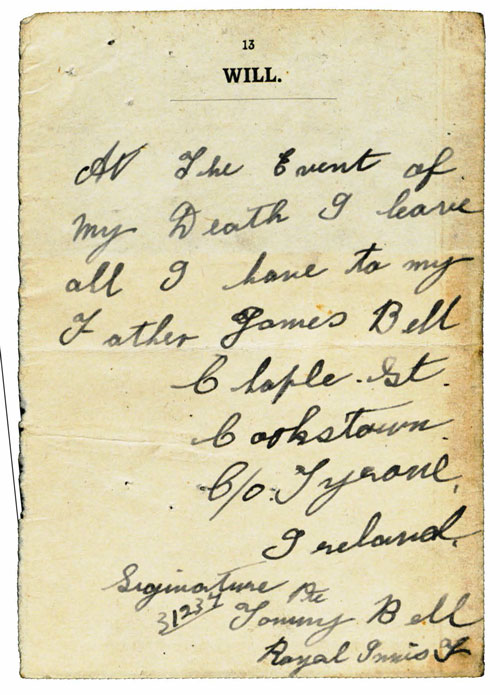 13
WILL.
At The Event of
my Death I leave
all I have to my
Father James Bell
Chaple. St.
Cookstown.
C/o. Tyrone,
Ireland.
Siginature Pte
31237 Tommy Bell
Royal Innis F